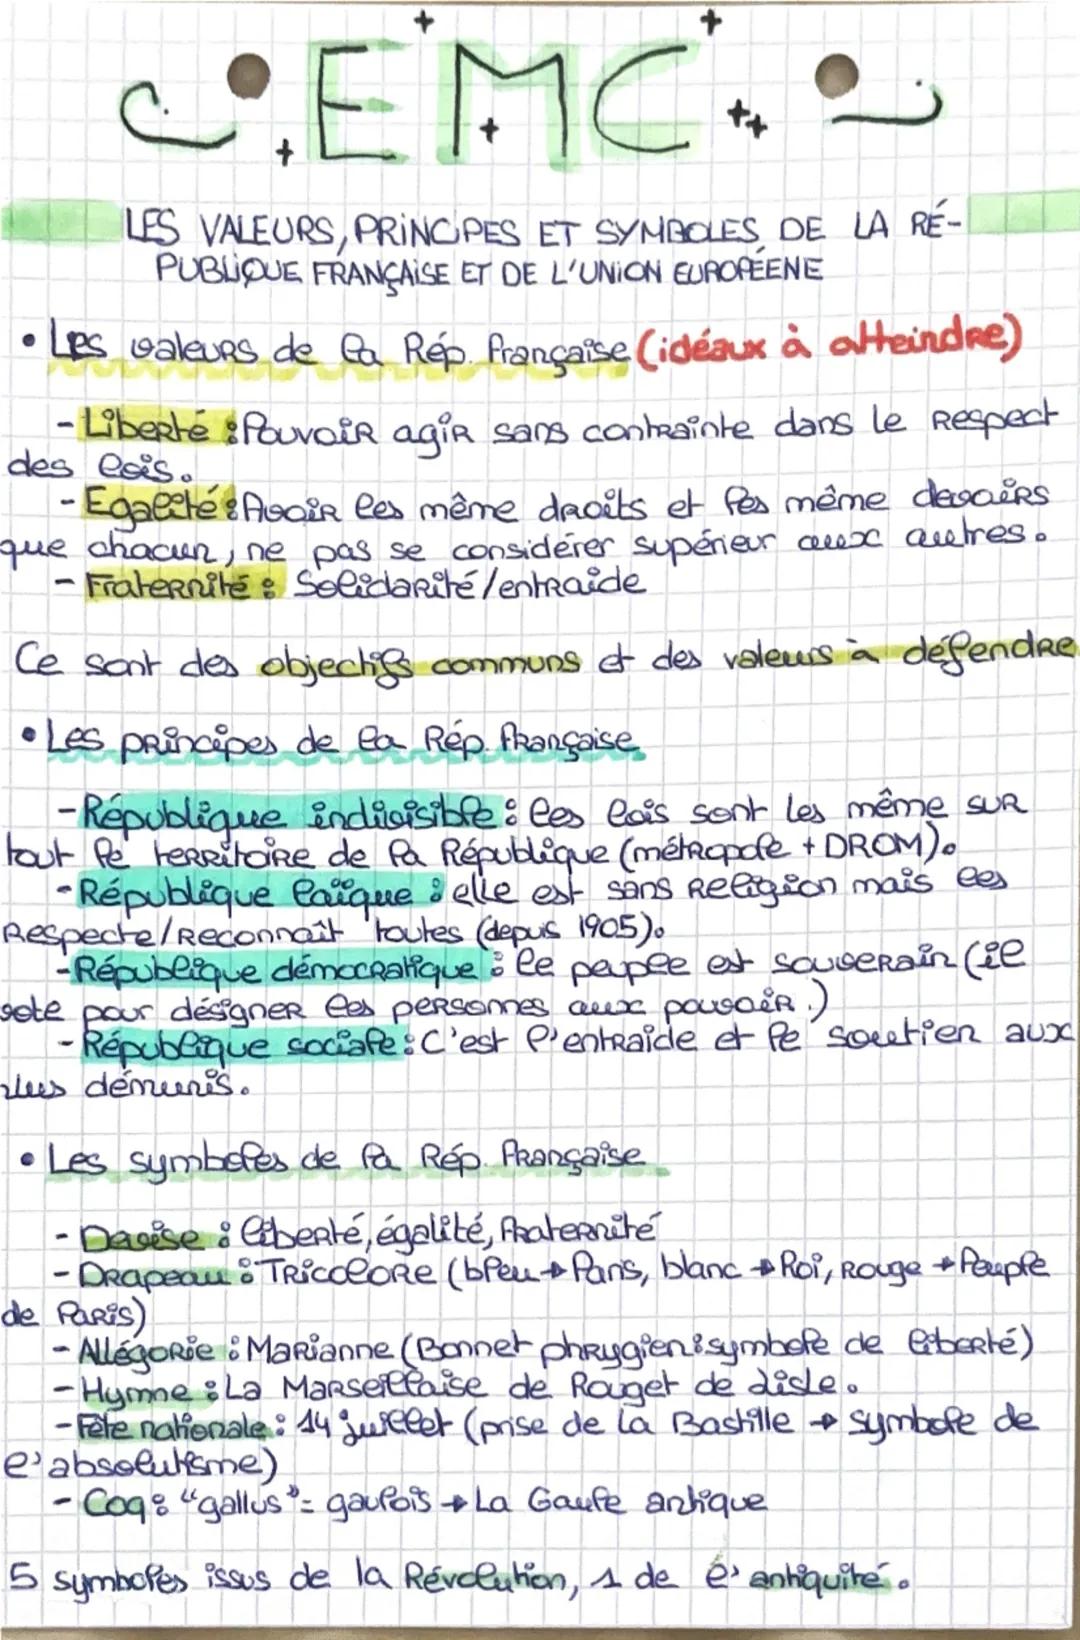 EMC
LES VALEURS, PRINCIPES ET SYMBOLES DE LA RÉ-
PUBLIQUE FRANÇAISE ET DE L'UNION EUROPÉENE
• Les valeurs de la Rép. Française (idéaux à atteindre)
- Liberté : Pouvoir agir sans contrainte dans le respect
des lois.
- Egalité : Avoir les même droits et les même devoirs
que chacun, ne pas se considérer supérieur aux autres.
- Fraternité : Solidarité/entraide
Ce sont des objectifs communs et des valeurs à défendre
• Les principes de la Rép. Française
- République indivisible : les lois sont les même sur
tout le territoire de la République (métropole + DROM).
- République laïque : elle est sans religion mais les
respecte/reconnaît toutes (depuis 1905).
- République démocratique : le peuple est souverain (il
vote pour désigner les personnes aux pouvoir.)
- République sociale : C'est l'entraide et le soutien aux
plus démunis.
• Les symboles de la Rép. Française
- Devise : liberté, égalité, fraternité
- Drapeau : Tricolore (bleu → Paris, blanc → Roi, Rouge → Peuple
de Paris)
- Allégorie : Marianne (Bonnet phrygien : symbole de liberté)
- Hymne : La Marseillaise de Rouget de Lisle.
- Fête nationale : 14 juillet (prise de la Bastille → symbole de
l'absolutisme)
- Coq : "gallus" = gaulois → La Gaule antique
5 symboles issus de la Révolution, 1 de l'antiquité.